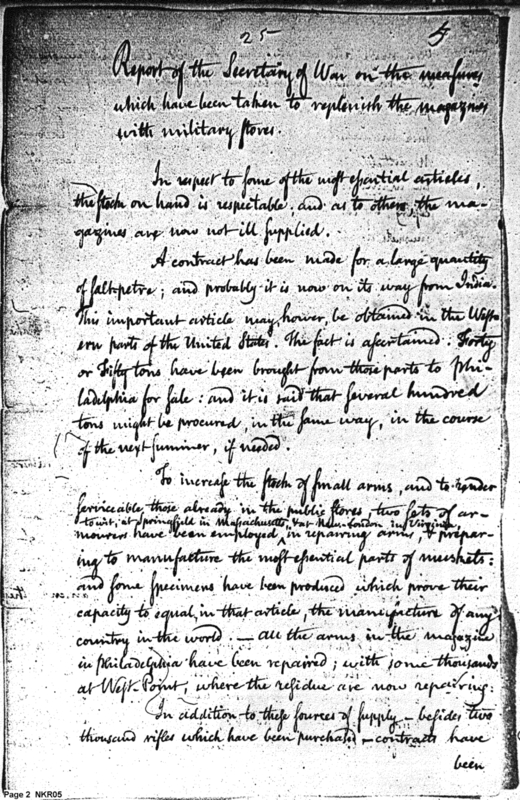 25
Report of the Secretary of War on the measures
which have been taken to replenish the magazines
with military stores.
In respect to some of the most essential articles,
the stock on hand is respectable, and as to others, the ma-
gazines are now not ill supplied.
A contract has been made for a large quantity
of salt-petre; and probably it is now on its way from India.
This important article may, however, be obtained in the West-
ern parts of the United States. The fact is ascertained: Forty
or Fifty tons have been brought from those parts to Phi-
ladelphia for sale: and it is said that several hundred
tons might be procured, in the same way, in the course
of the next summer, if needed.
To increase the stock of small arms, and to render
serviceable, those already in the public stores, two sets of ar-
to wit, at Springfield in Massachusetts, & at New-London in Virginia,
mourers have been employed, in repairing arms, & prepar-
ing to manufacture the most essential parts of muskets:
and some specimens have been produced which prove their
capacity to equal, in that article, the manufacture of any
country in the world. — All the arms in the magazine
in Philadelphia have been repaired; with some thousands
at West-Point, where the residue are now repairing.
In addition to these sources of supply – besides two
thousand rifles which have been purchased – contracts have
been
Page 2 NKR05